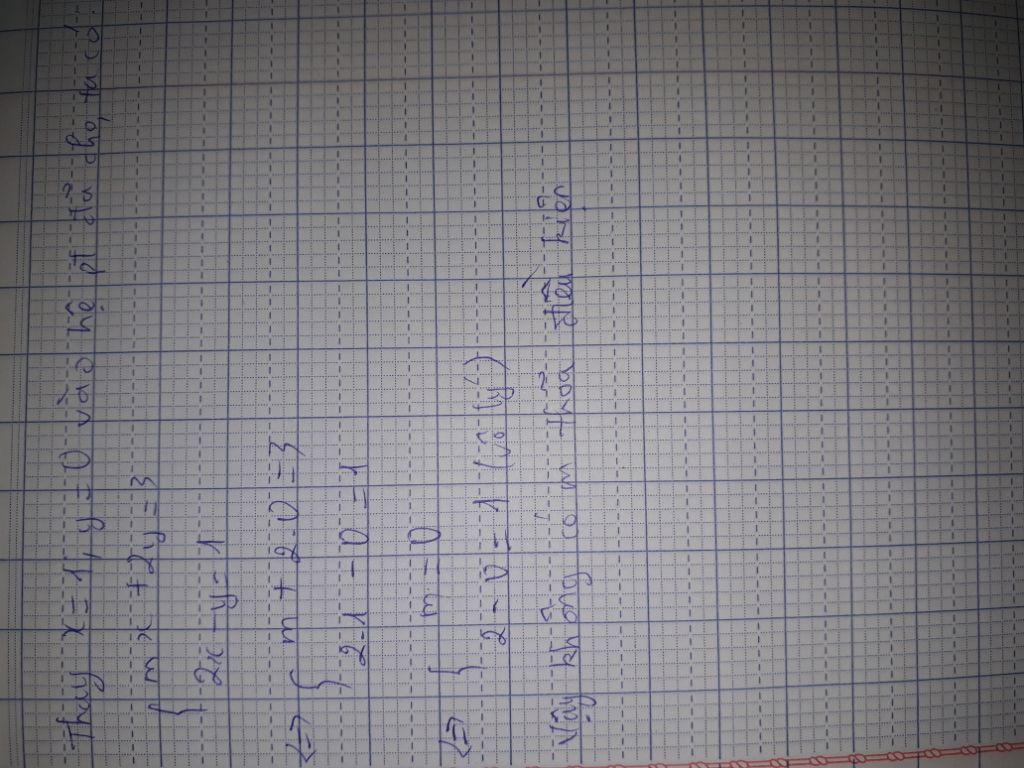 Thay x = 1, y = 0 vào hệ pt đã cho, ta có
{ m x + 2y = 3
2x - y = 1
<=> { m + 2.0 = 3
2.1 - 0 = 1
<=> { m = 0
2 - 0 = 1 (vô lý)
Vậy không có m thoã điều kiện